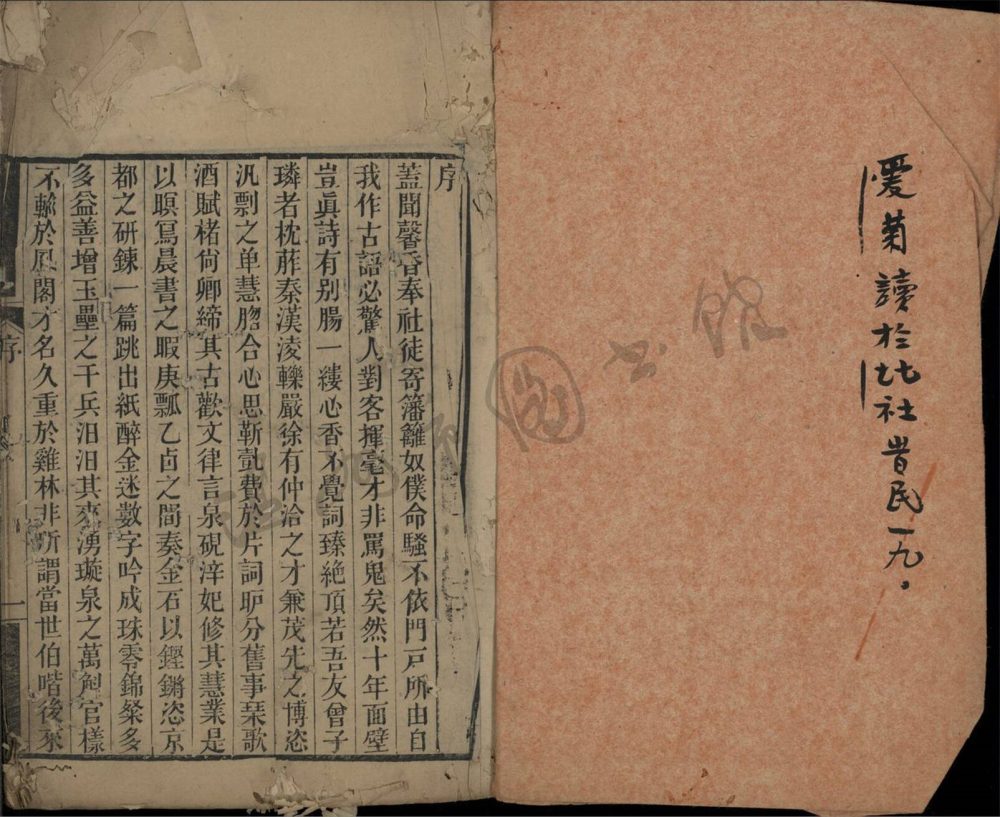 愛菊讀於比社時民一九.
序
蓋聞馨香奉社徒寄籓籬奴僕命騷不依門戸所由自
我作古語必驚人對客揮毫才非罵鬼矣然十年面壁
豈眞詩有别腸一縷心香不覺詞臻絶頂若吾友曾子
璘者枕葄秦漢淩轢嚴徐有仲治之才兼茂先之博恣
汎剽之单慧膽合心思靳氎費於片詞胪分舊事琹歌
酒賦楮尙卿締其古歡文律言泉硯滓妃修其慧業是
以瞑冩晨書之暇庚瓢乙卣之間奏金石以鏗鏘恣京
都之研鍊一篇跳出紙醉金迷數字吟成珠零錦粲多
多益善增玉壘之千兵汨汨其來湧璇泉之萬斛官樣
不輸於凤閣才名久重於雞林非所謂當世伯喈後來
序
一
圖書館